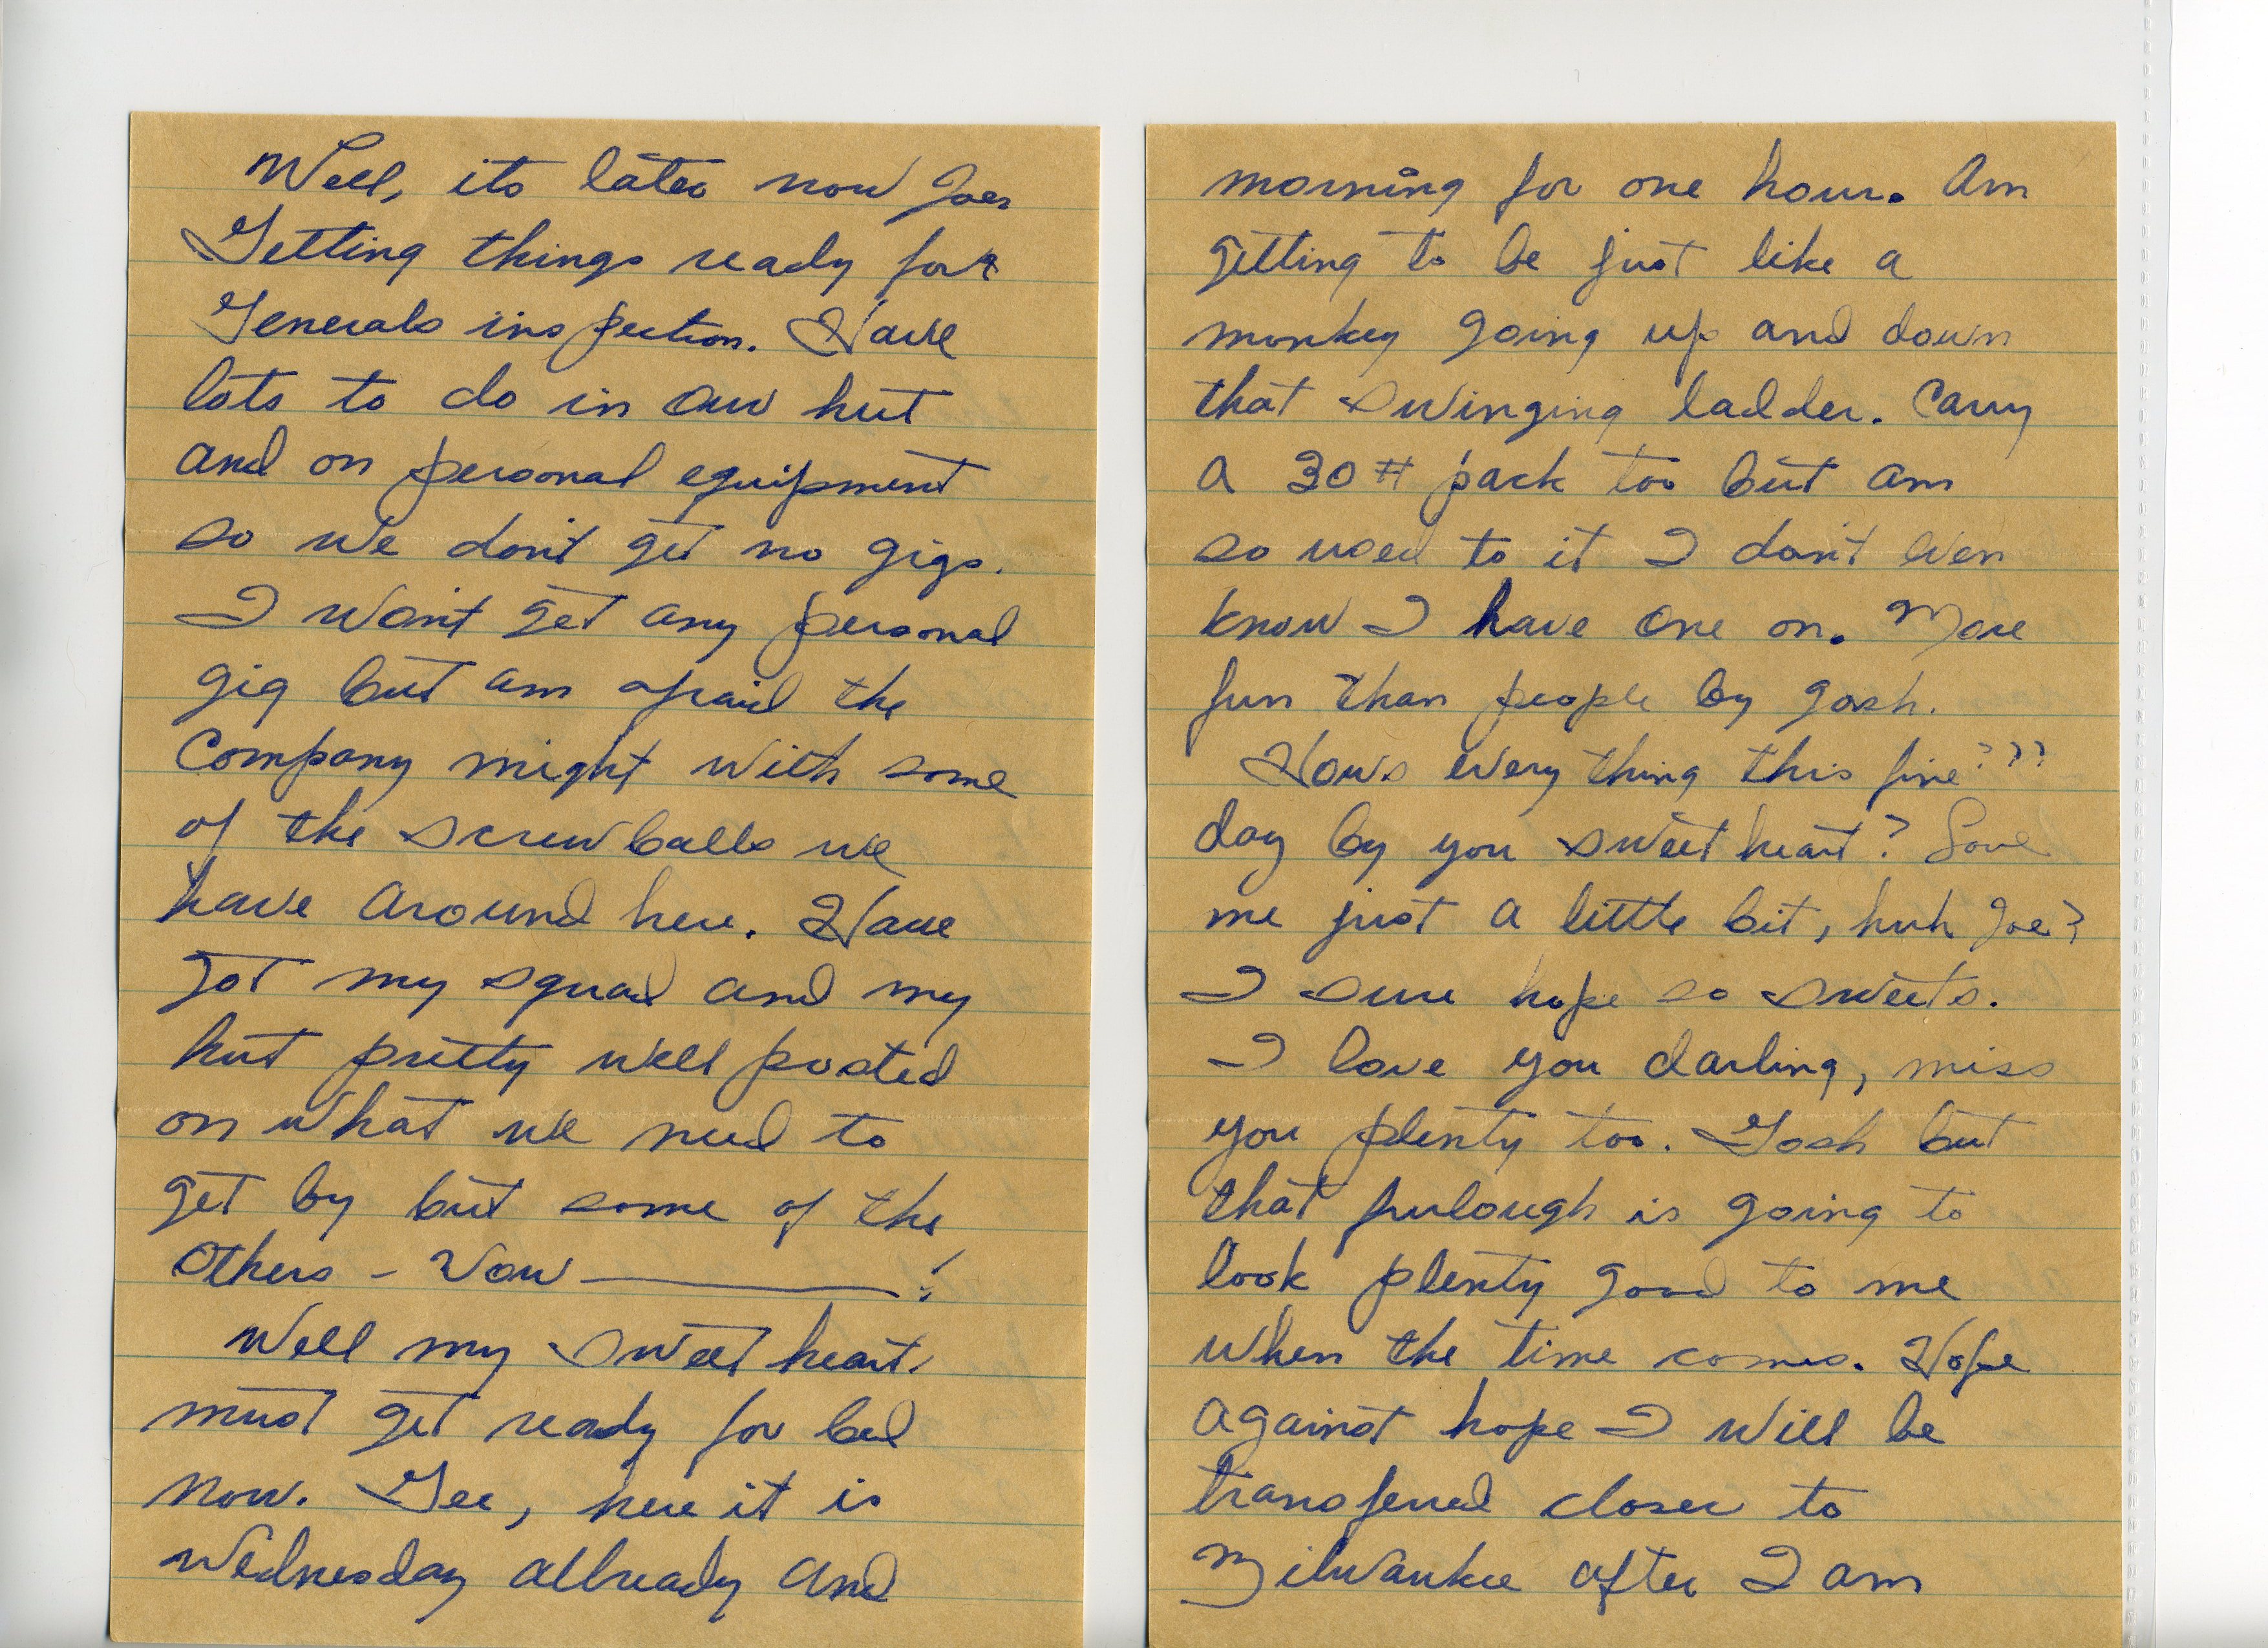 Well, its later now Joe.
Getting things ready for
Generals inspection. Have
lots to do in our hut
and on personal equipment
so we don't get no gigs.
I won't get any personal
gig but am afraid the
Company might with some
of the screwballs we
have around here. Have
got my squad and my
hut pretty well posted
on what we need to
get by but some of the
others - Wow ———!
Well my sweet heart
must get ready for bed
now. Gee, here it is
Wednesday allready and
morning for one hour. Am
getting to be just like a
monkey going up and down
that swinging ladder. Carry
a 30# pack too but am
so used to it I don't even
know I have one on. More
fun than people by gosh.
Hows every thing this fine???
day by you sweet heart? Love
me just a little bit, huh Joe?
I sure hope so sweets.
I love you darling, miss
you plenty too. Gosh but
that furlough is going to
look plenty good to me
when the time comes. Hope
against hope I will be
transfered closer to
Milwaukee after I am